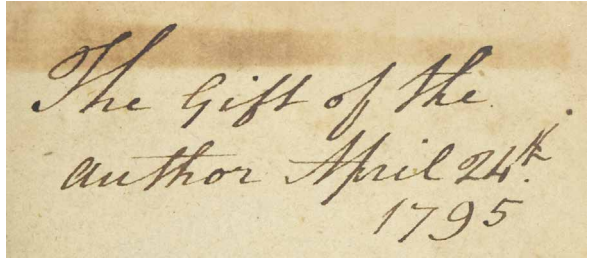 The Gift of the
author April 24th.
1795